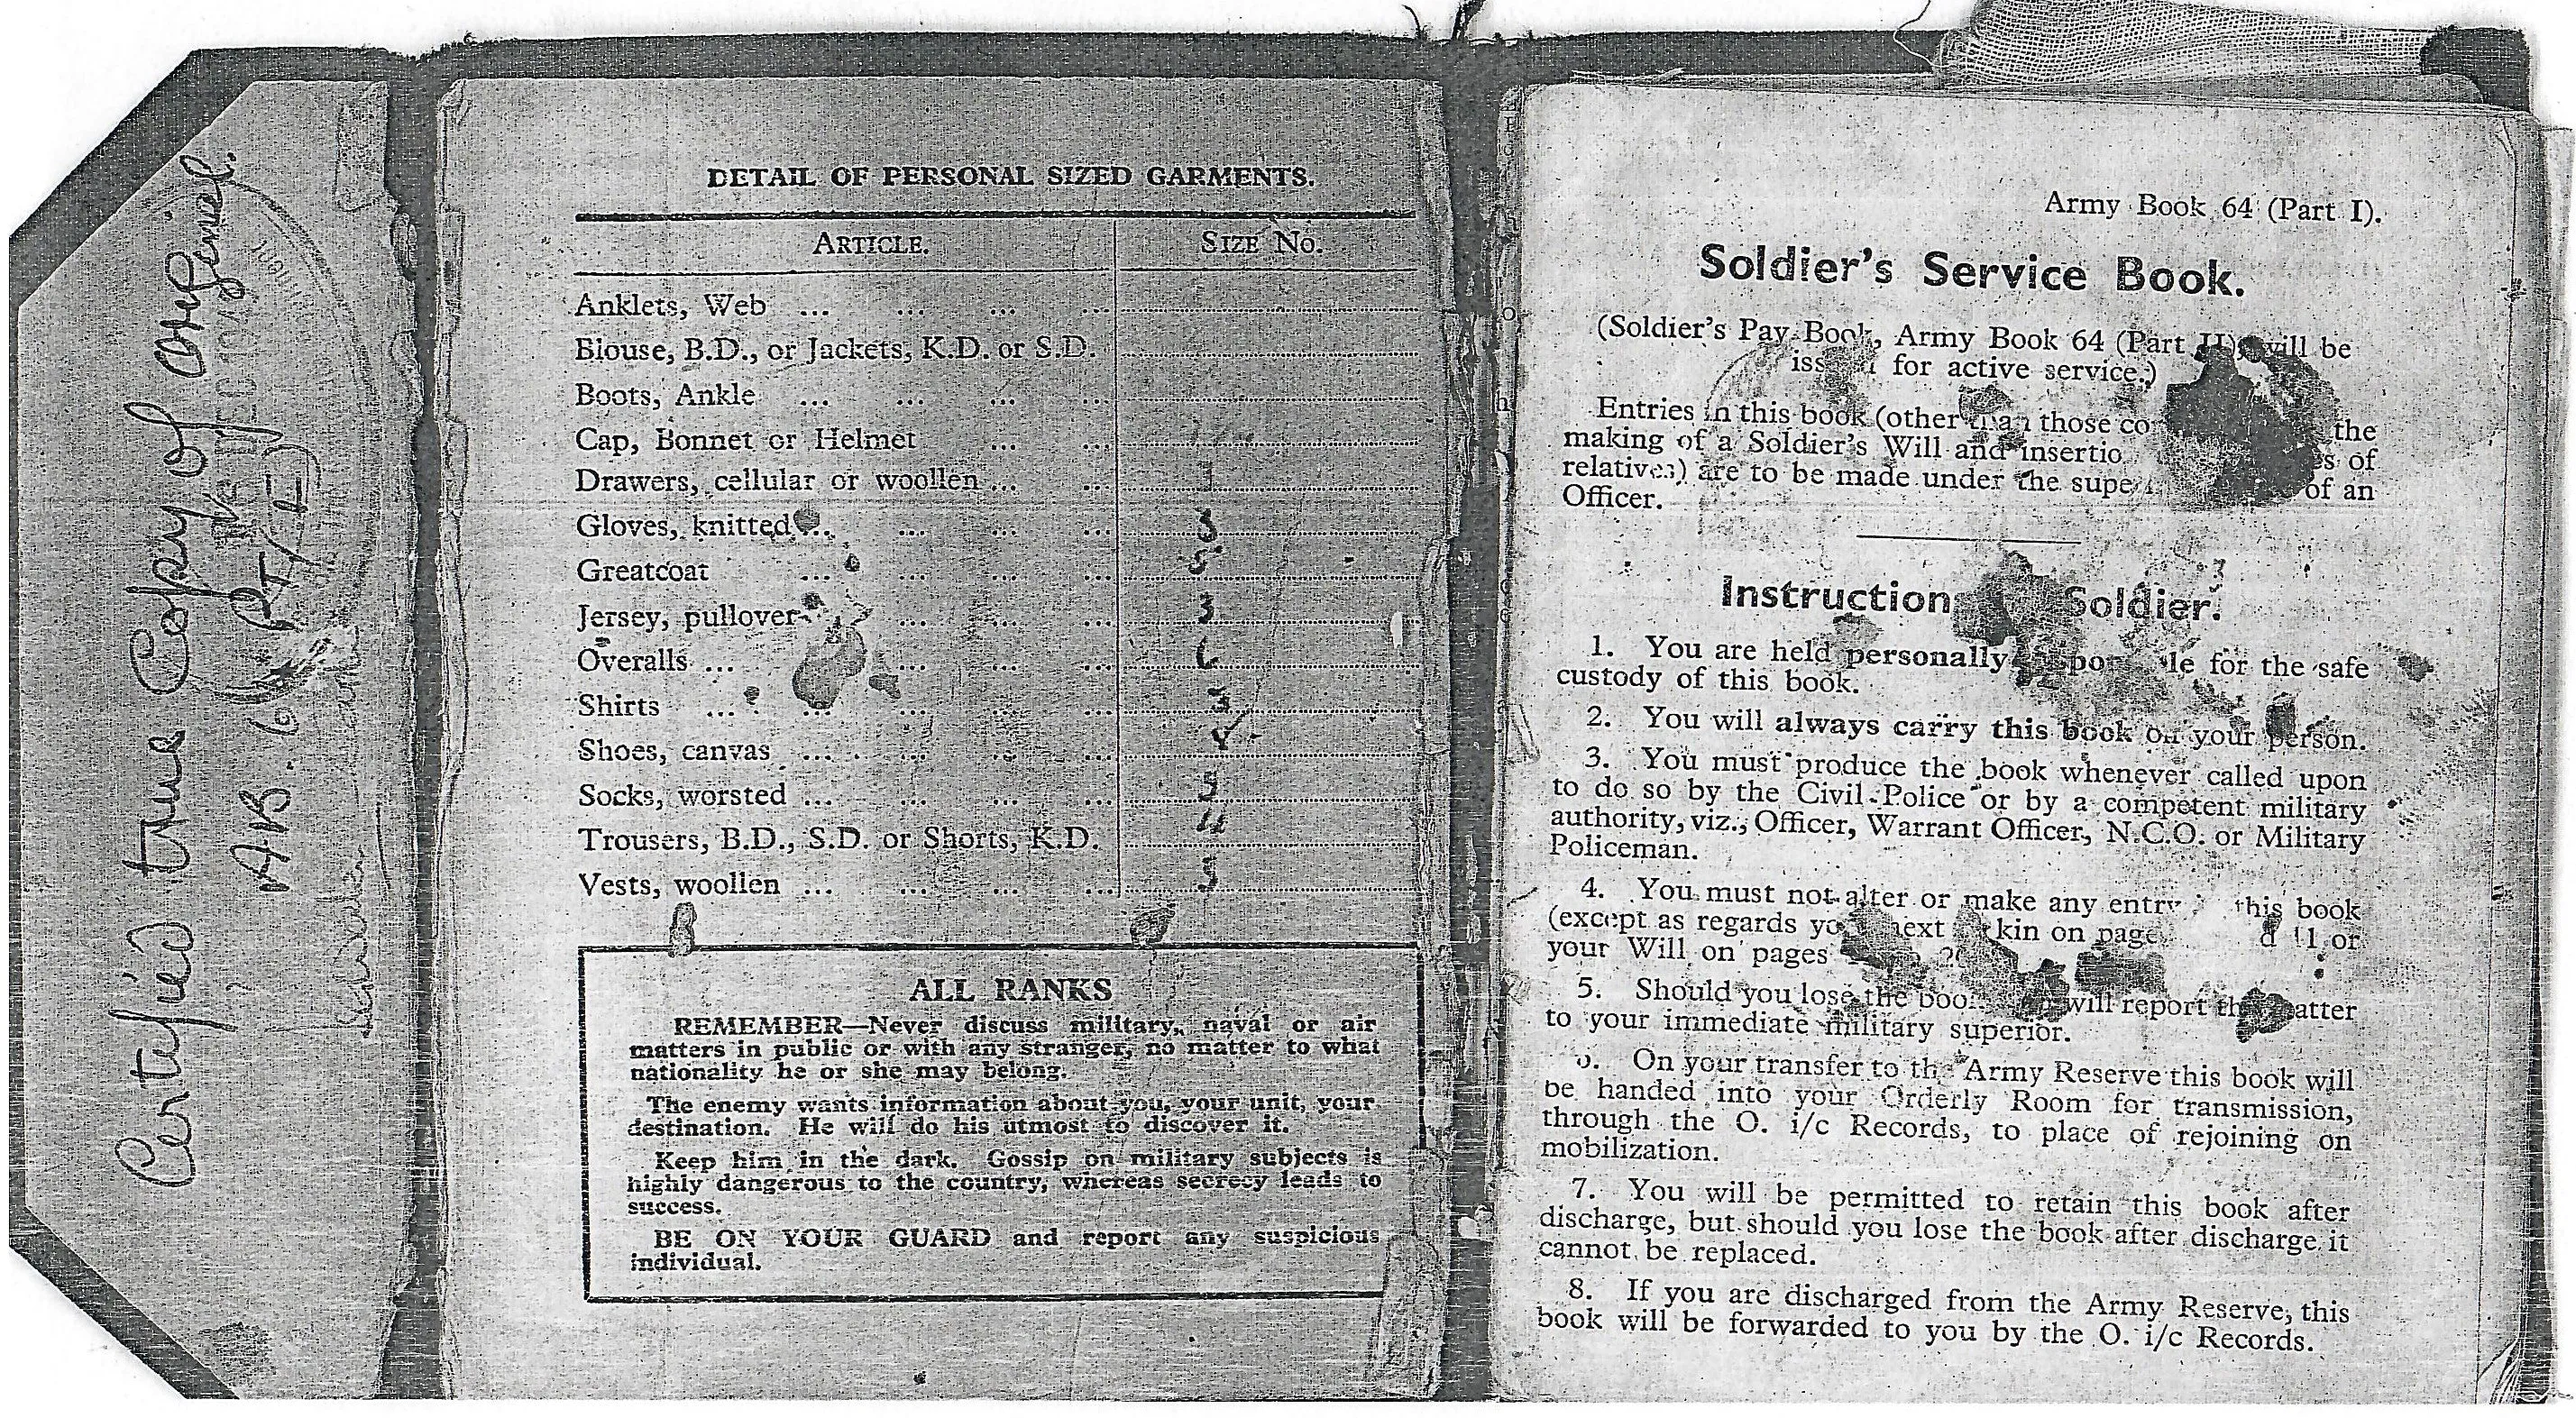 Certified true Copy of original.
A.B. 64 PT/I
DETAIL OF PERSONAL SIZED GARMENTS.
ARTICLE. SIZE NO.
Anklets, Web ... ... ... ...
Blouse, B.D., or Jackets, K.D. or S.D.
Boots, Ankle ... ... ... ...
Cap, Bonnet or Helmet ... ...
Drawers, cellular or woollen ... ...
Gloves, knitted ... ... ... ...
Greatcoat ... ... ... ...
Jersey, pullover ... ... ... 3
Overalls ... ... ... ... 6
Shirts ... ... ... ... ... 3
Shoes, canvas ... ... ... ...
Socks, worsted ... ... ... ...
Trousers, B.D., S.D. or Shorts, K.D.
Vests, woollen ... ... ... ...
ALL RANKS
REMEMBER—Never discuss military, naval or air
matters in public or with any stranger, no matter to what
nationality he or she may belong.
The enemy wants information about you, your unit, your
destination. He will do his utmost to discover it.
Keep him in the dark. Gossip on military subjects is
highly dangerous to the country, whereas secrecy leads to
success.
BE ON YOUR GUARD and report any suspicious
individual.
Army Book 64 (Part I).
Soldier's Service Book.
(Soldier's Pay Book, Army Book 64 (Part II), will be
for active service.)
Entries in this book (other than those the
making of a Soldier's Will and of
relatives) are to be made under the of an
Officer.
Instruction Soldier.
1. You are held personally for the safe
custody of this book.
2. You will always carry this book on your person.
3. You must produce the book whenever called upon
to do so by the Civil Police or by a competent military
authority, viz., Officer, Warrant Officer, N.C.O. or Military
Policeman.
4. You must not alter or make any entry this book
(except as regards next kin on 11 or
your Will on pages
5. Should you lose the will report the matter
to your immediate military superior.
On your transfer to the Army Reserve this book will
be handed into your Orderly Room for transmission,
through the O. i/c Records, to place of rejoining on
mobilization.
7. You will be permitted to retain this book after
discharge, but should you lose the book after discharge it
cannot be replaced.
8. If you are discharged from the Army Reserve, this
book will be forwarded to you by the O. i/c Records.